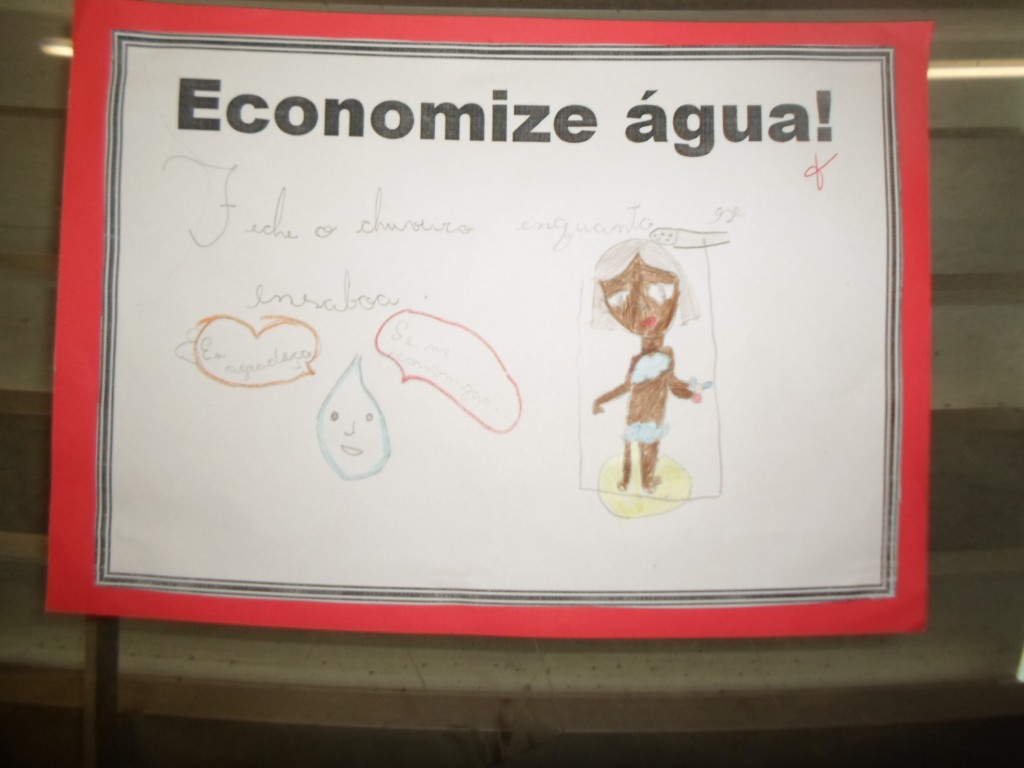 Economize água!
Feche o chuveiro enquanto
ensaboa.
Eu
agradeço
Se me
economizar...